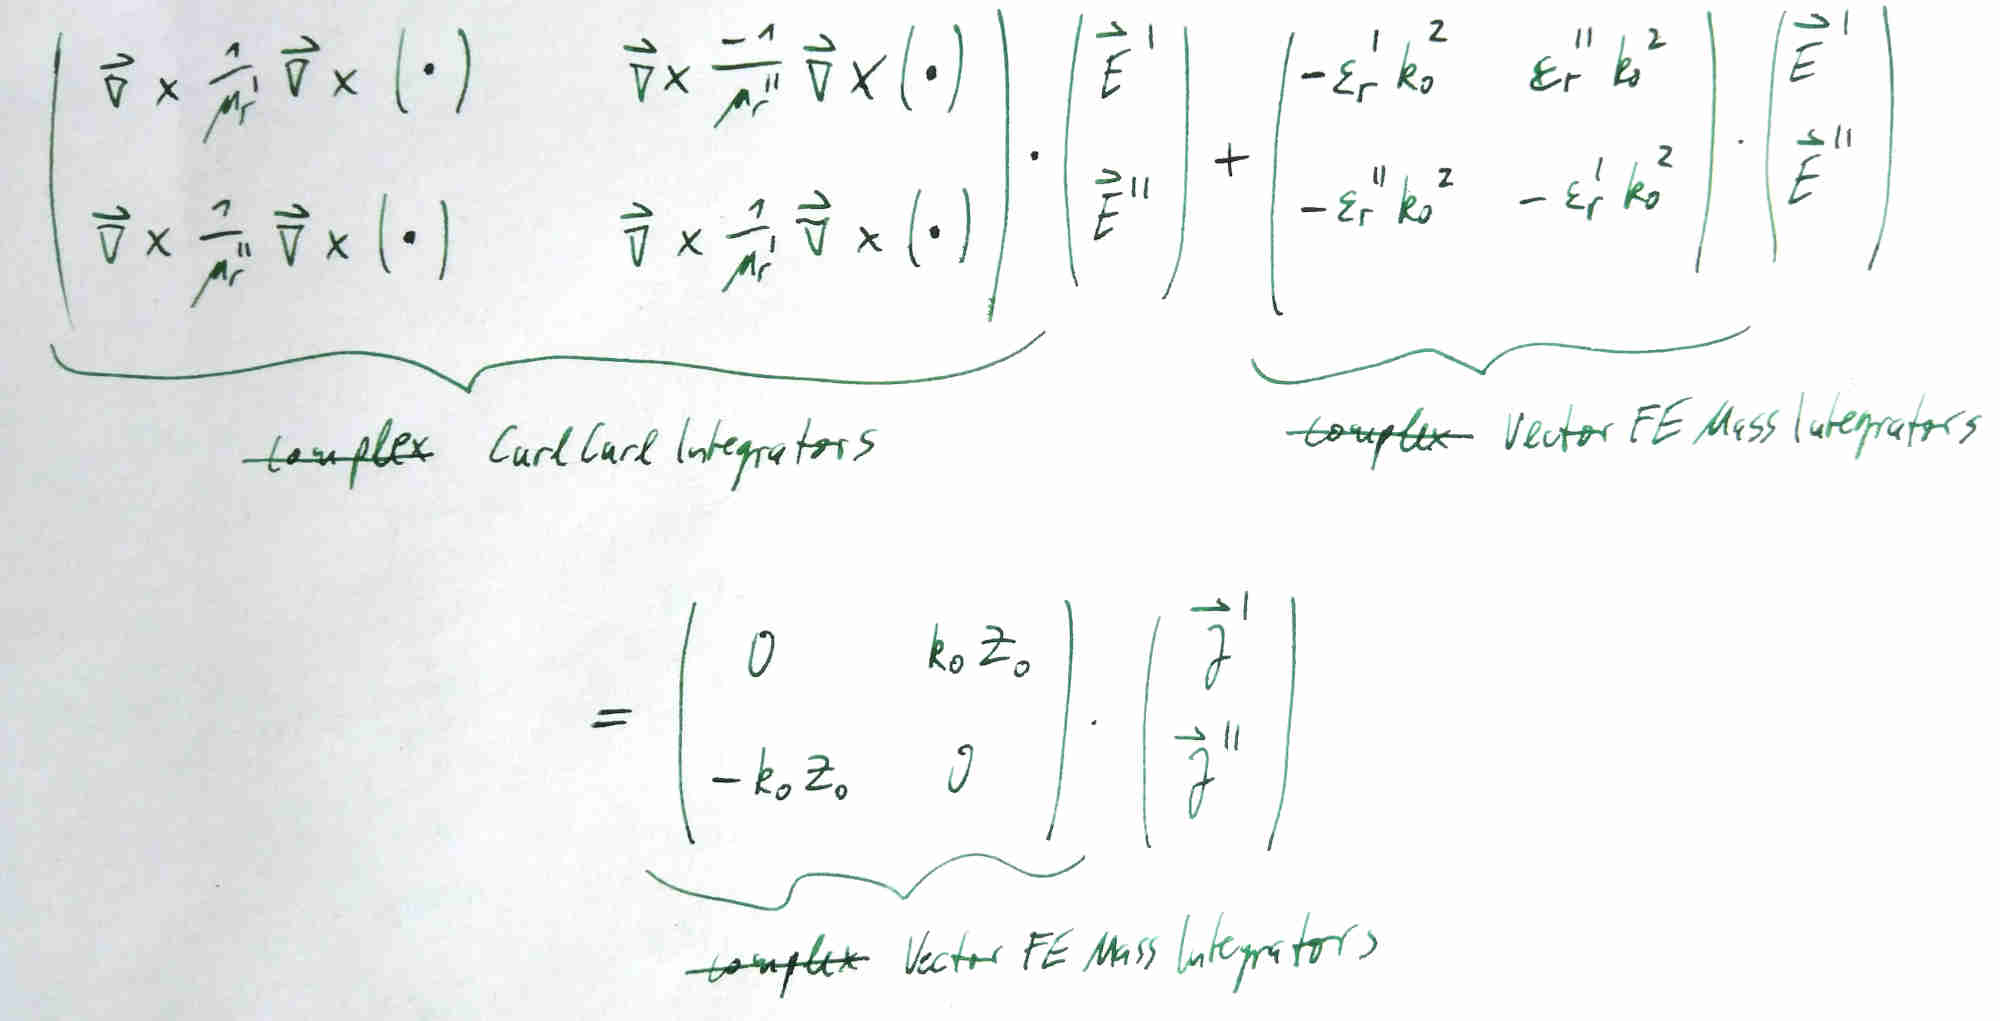 ( ∇⃗ × 1/μᵣ' ∇⃗ × (•)   ∇⃗ × -1/μᵣ'' ∇⃗ × (•) ; ∇⃗ × 1/μᵣ'' ∇⃗ × (•)   ∇⃗ × 1/μᵣ' ∇⃗ × (•) ) · ( E⃗' ; E⃗'' ) + ( -εᵣ' k₀²   εᵣ'' k₀² ; -εᵣ'' k₀²   -εᵣ' k₀² ) · ( E⃗' ; E⃗'' )
complex CurlCurl Integrators
complex Vector FE Mass Integrators
= ( 0   k₀ Z₀ ; -k₀ Z₀   0 ) · ( J⃗' ; J⃗'' )
complex Vector FE Mass Integrators